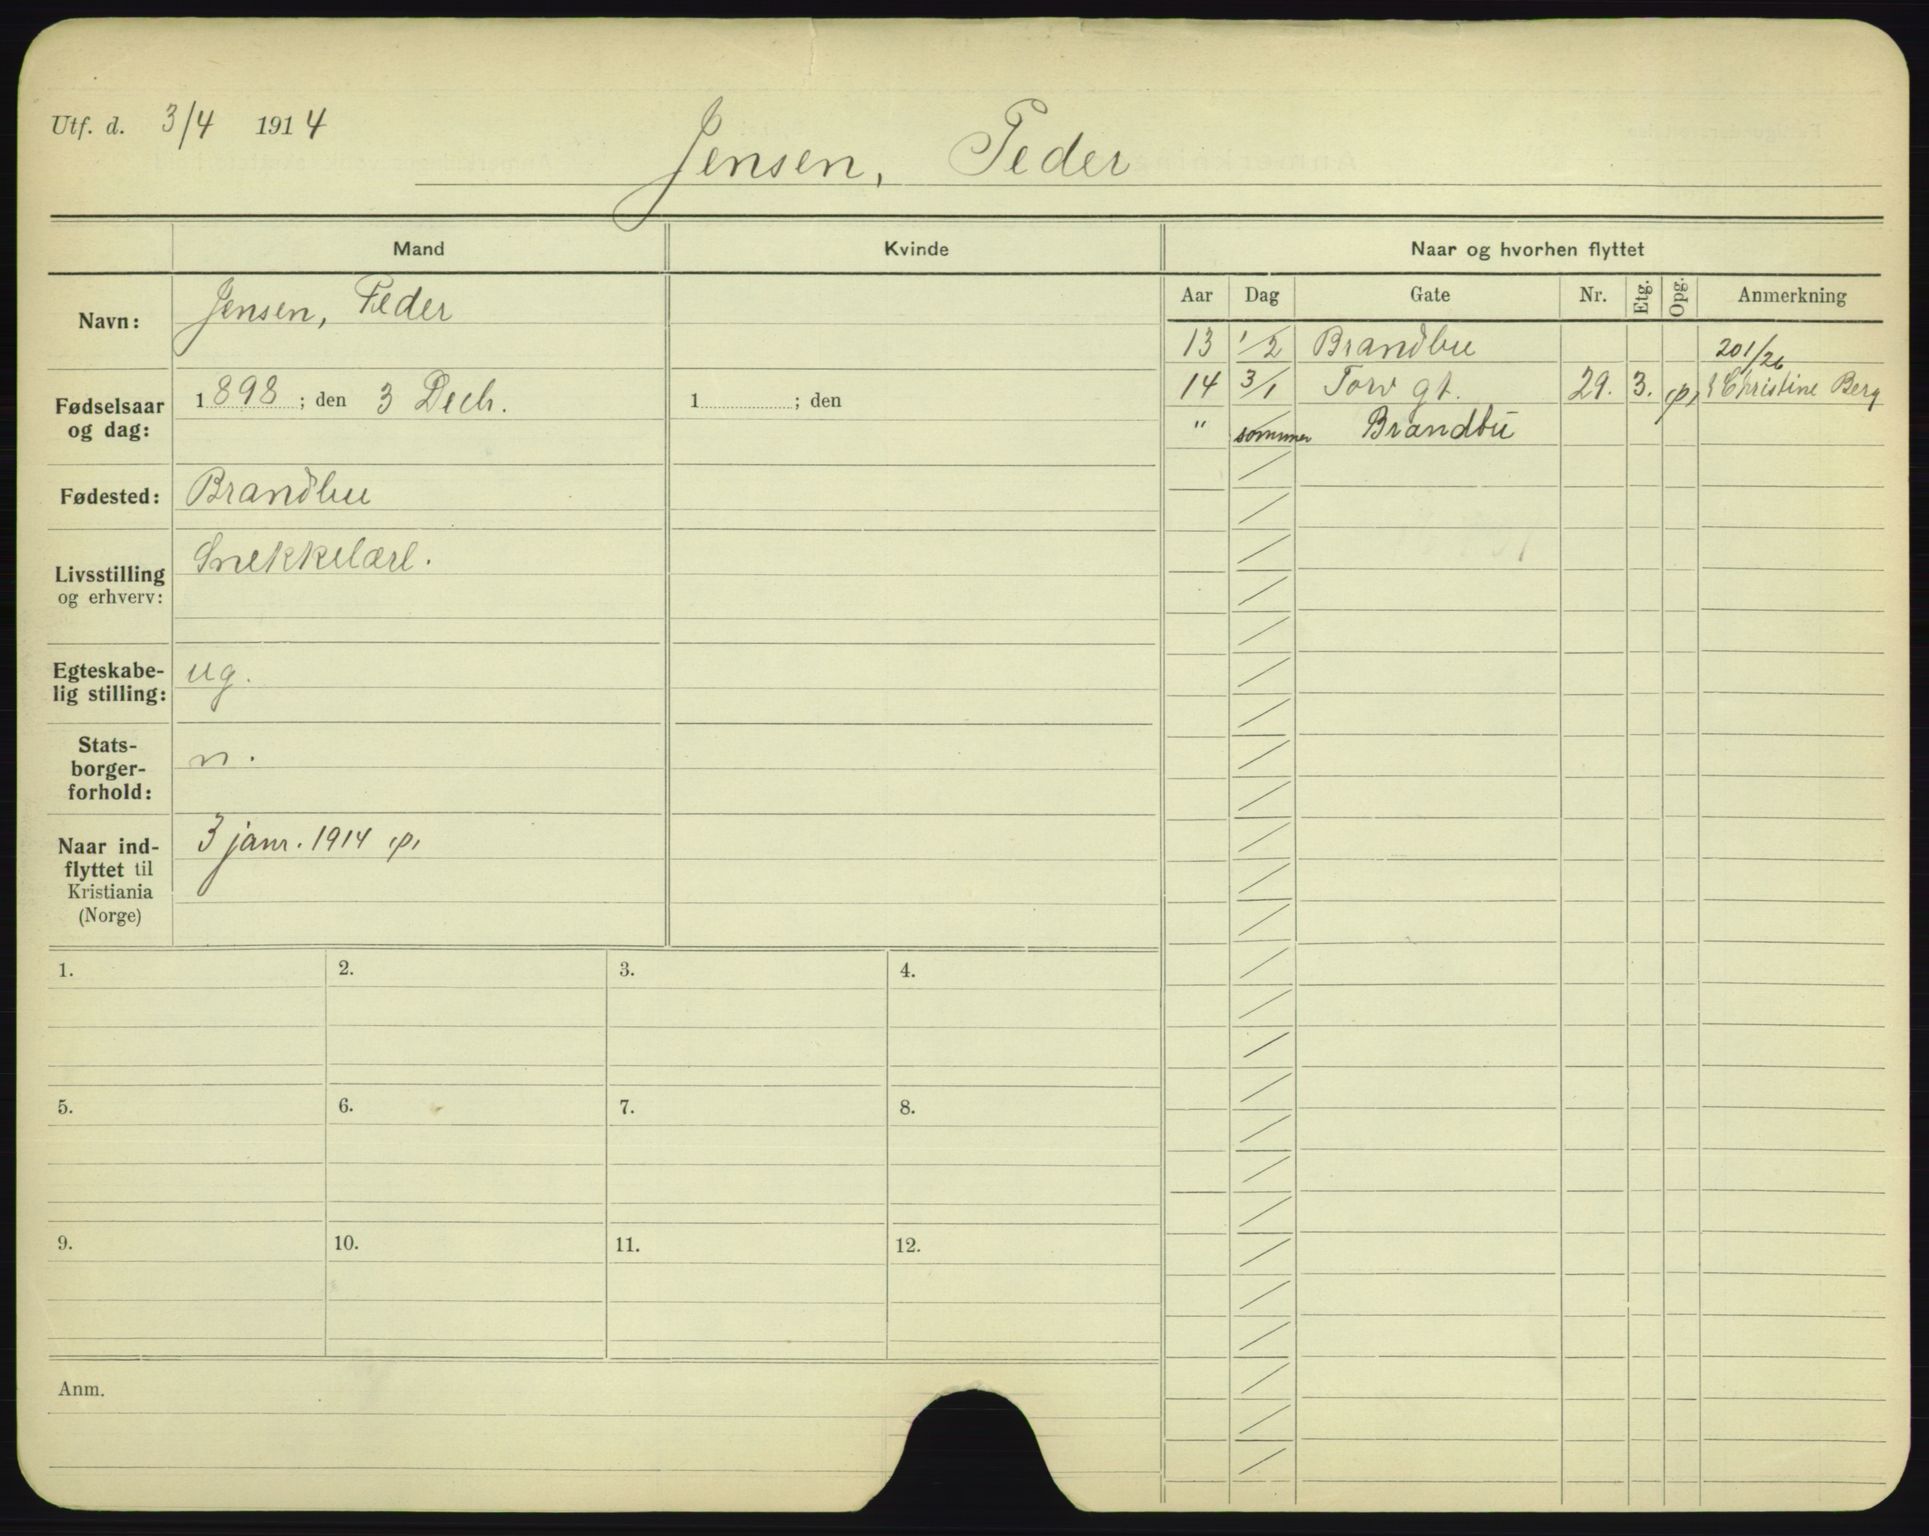 Utf. d. 3/4 1914
Jensen, Peder
Mand
Kvinde
Naar og hvorhen flyttet
Aar
Dag
Gate
Nr.
Etg.
Opg.
Anmerkning
Navn:
Jensen, Peder
13 1/2 Brandbu
201/26
14 3/1 Torv gt. 29. 3. Christine Berg
" sommer Brandbu
Fødselsaar
og dag:
1898; den 3 Decb.
1 ; den
Fødested:
Brandbu
Livsstilling
og erhverv:
Snekkelærl.
Egteskabe-
lig stilling:
ug.
Stats-
borger-
forhold:
n.
Naar ind-
flyttet til
Kristiania
(Norge)
3 janr. 1914
1.
2.
3.
4.
5.
6.
7.
8.
9.
10.
11.
12.
Anm.